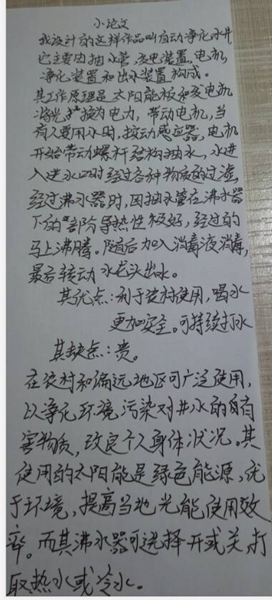 小论文
我设计的这样作品叫自动净化水井
它主要由抽水管、发电装置、电机、
净化装置和出水装置构成。
其工作原理是太阳能板和发电机
将光扩接为电力,带动电机,当
有人要用水时,按动感应器,电机
开始带动螺杆结构抽水,水进
入进水口时经过各种物质的过滤,
经过沸水器时,因抽水管在沸水器
下的部阶导热性极好,经过的
马上沸腾。随后加入消毒液消毒,
最后转动水龙头出水。
其优点:利于农村使用,喝水
更加安全。可持续过水
其缺点:贵。
在农村和偏远地区可广泛使用,
以净化环境污染对井水的有
害物质,改良个人身体状况。其
使用的太阳能是绿色能源,优
于环境,提高当地光能使用效
率。而其沸水器可选择开或关,打
取热水或冷水。